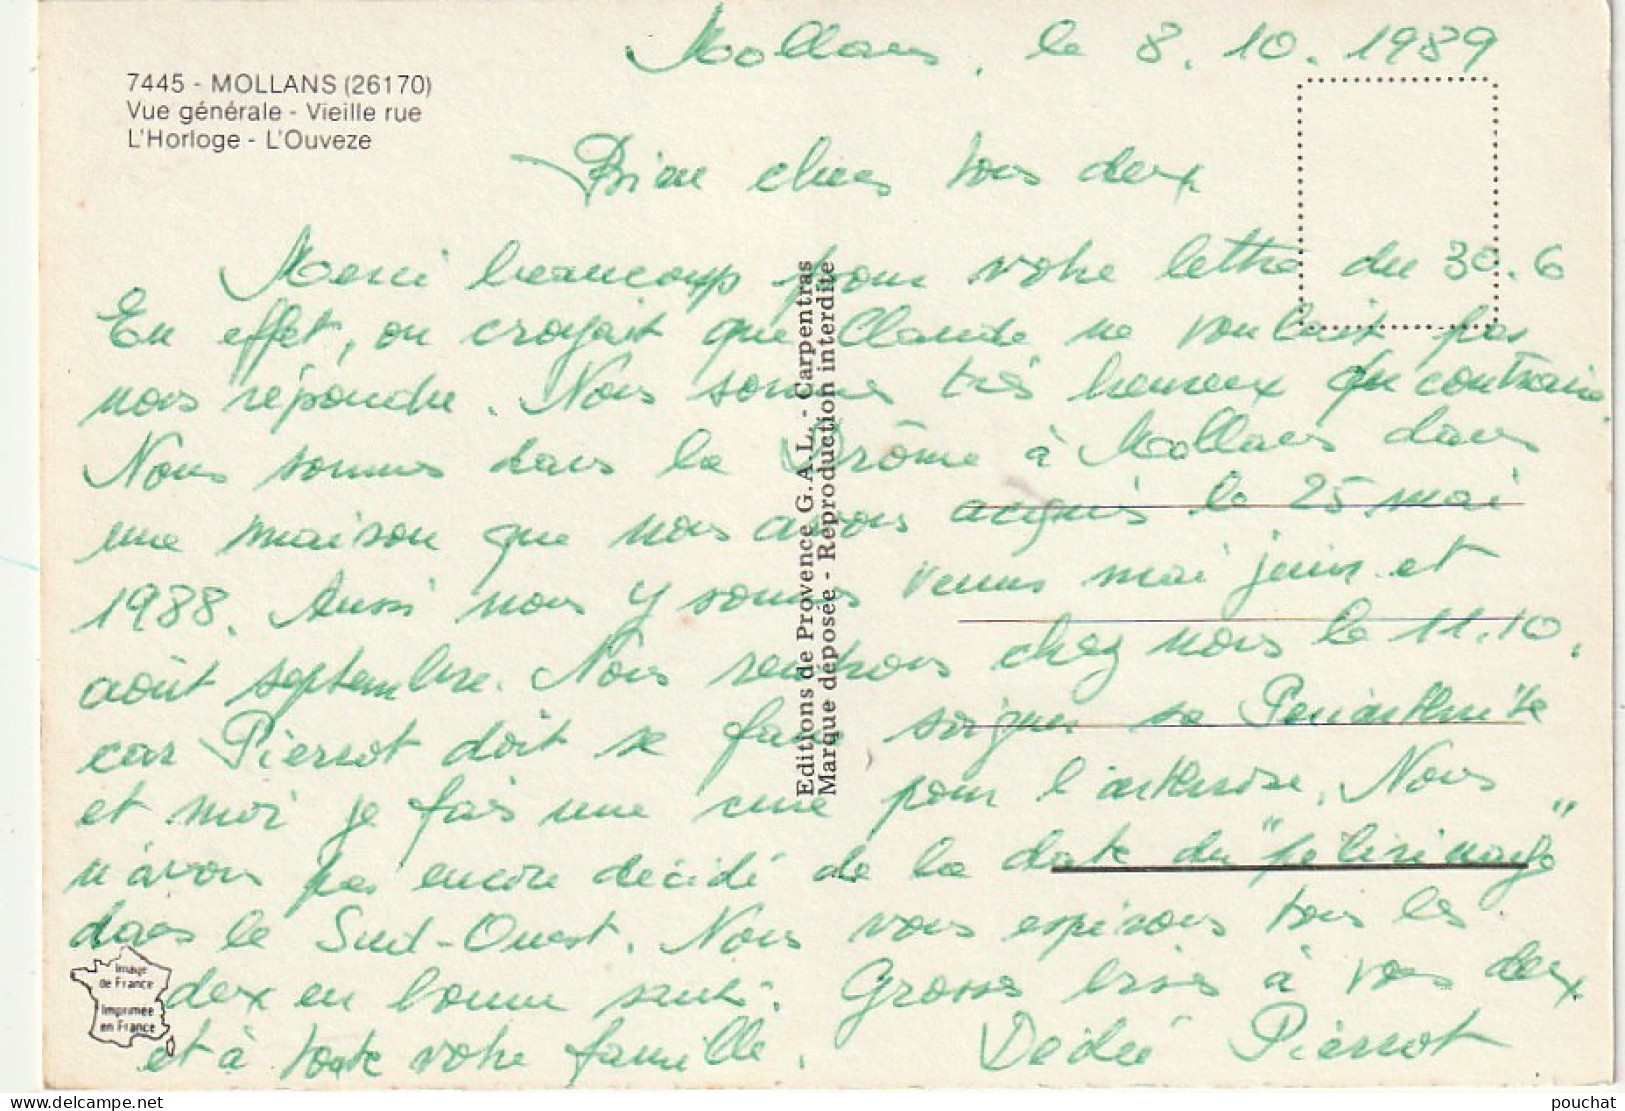 Mollans, le 8.10.1989
7445 - MOLLANS (26170)
Vue générale - Vieille rue
L'Horloge - L'Ouveze
Bien chers tous deux
Merci beaucoup pour votre lettre du 30.6
En effet, on croyait que Claude ne voulait pas
nous répondre. Nous sommes très heureux du contraire.
Nous sommes dans la Drôme à Mollans dans
une maison que nous avons acquis le 25 mai
1988. Aussi nous y sommes venus mai juin et
août septembre. Nous rentrons chez nous le 11.10.
car Pierrot doit se faire soigner sa
et moi je fais une cure pour l'arthrose. Nous
n'avons pas encore décidé de la date du "pélerinage"
dans le Sud-Ouest. Nous vous espérons tous les
deux en bonne santé. Grosses bises à vous deux
et à toute votre famille. Dédée Pierrot
Editions de Provence G.A.L. - Carpentras
Marque déposée - Reproduction interdite
Image
de France
Imprimée
en France
delcampe.net
pouchat